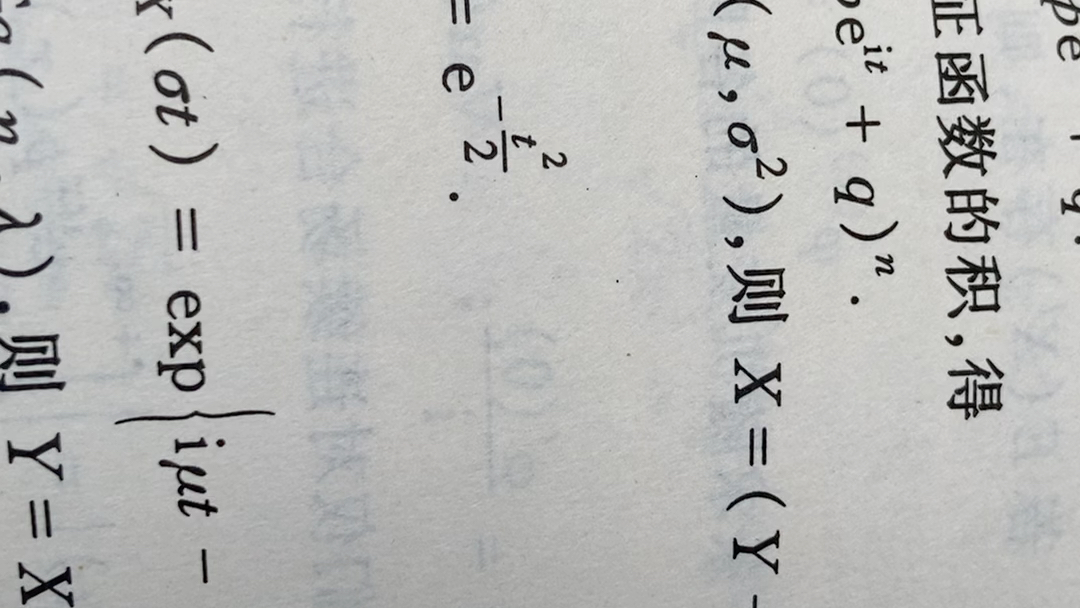 pe + q.
征函数的积,得
pe^{it} + q)^n.
(μ,σ²),则 X = (Y -
= e^{-\frac{t^2}{2}}.
X(σt) = exp{iμt -
λ).则 Y = X